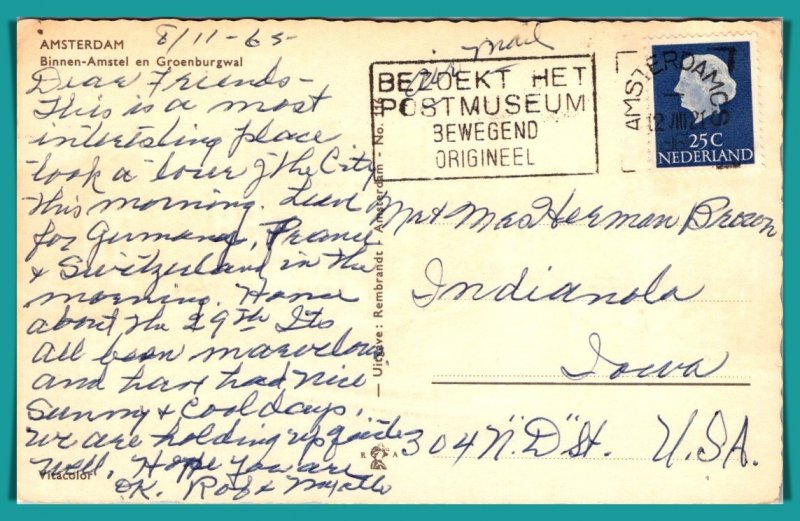 AMSTERDAM
Binnen-Amstel en Groenburgwal
8/11-65
Dear Friends-
This is a most
interesting place
took a tour of the City
this morning. Leave
for Germany, France
& Switzerland in the
morning. Home
about the 29th Its
all been marvelous
and have had nice
Sunny & Cool days.
We are holding up quite
well, Hope you are
OK. Rob & Myrtle
Vitacolor
Uitgave: Rembrandt - Amsterdam - No. 116
air mail
BEZOEKT HET
POSTMUSEUM
BEWEGEND
ORIGINEEL
AMSTERDAM CS
12 VIII 21
25 C
NEDERLAND
Mr & Mrs Herman Brown
Indianola
Iowa
304 "N. D" St. U.S.A.
R A